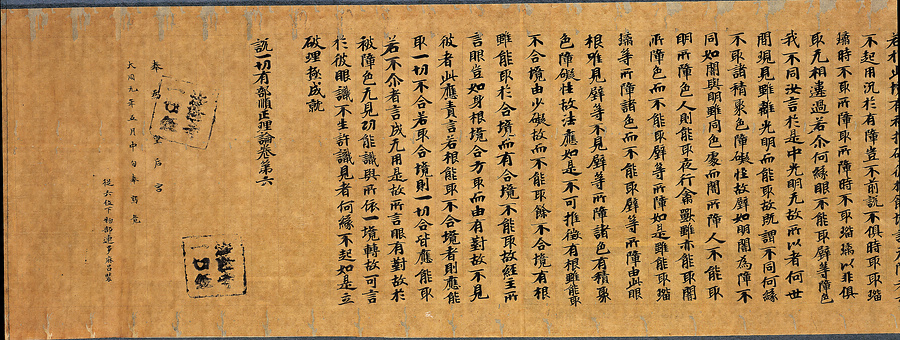 不起用沉於有障豈不前説不俱時取取瑠
璃時不取所障取所障時不取瑠璃以非俱
取无相違過若介何緣眼不能取壁等障色
我不同汝言於是中光明无故所以者何世
間現見雖離光明而能取故既謂不同何緣
不取諸積聚色障礙性故譬如明闇為障不
同如闇與明雖同色處而闇所障人不能取
明所障色人則能取夜行禽獸雖亦能取闇
所障色而不能取壁等所障如是雖能取瑠
璃等所障諸色而不能取壁等所障由此眼
根唯見壁等不見壁等所障諸色有積聚
色障礙性故法應如是不可推徵有根雖能取
不合境由少礙故而不能取餘不合境有根
雖能取於合境而有合境不能取故經主所
言眼豈如身根境合方取而由有對故不見
彼者此應責言若根能取不合境者則應能
取一切不合若取合境則一切合皆應能取
若不介者言成无用是故所言眼有對故於
被障色无見功能識與所依一境轉故可言
於彼眼識不生許識見者何緣不起如是立
破理極成就
説一切有部順正理論卷第六
奉為皇后宮
九年五月中旬奉
從六位下物部連